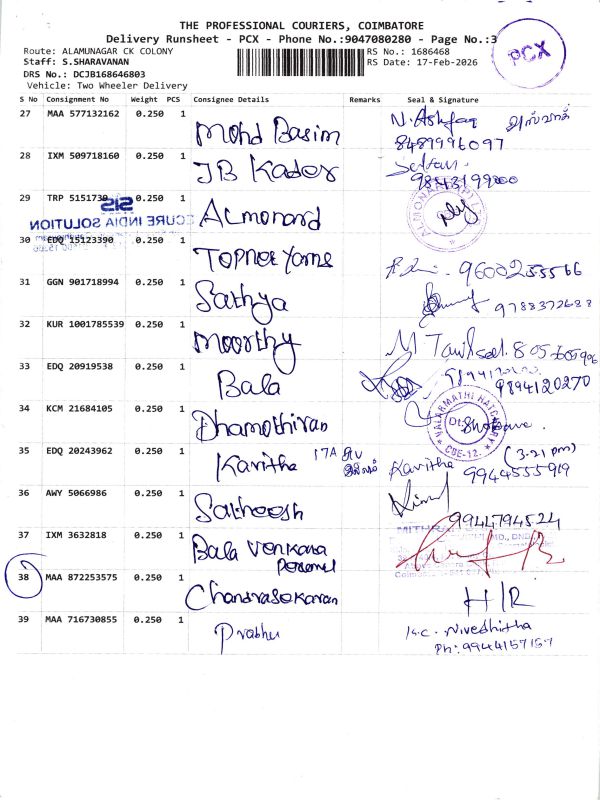 THE PROFESSIONAL COURIERS, COIMBATORE
Delivery Runsheet - PCX - Phone No.:9047080280 - Page No.:3
PCX
Route: ALAMUNAGAR CK COLONY
RS No.: 1686468
Staff: S.SHARAVANAN
RS Date: 17-Feb-2026
DRS No.: DCJB168646803
Vehicle: Two Wheeler Delivery
S No Consignment No Weight PCS Consignee Details Remarks Seal & Signature
27 MAA 577132162 0.250 1 Mohd Basim N. Ashfaq
8489996097
28 IXM 509718160 0.250 1 JB Kader
9843199900
29 TRP 5151739 0.250 1 Almonard
SIS
CURE INDIA SOLUTION
30 EDQ 15123390 0.250 1 TOPNOE Yarns 9600255566
31 GGN 901718994 0.250 1 Sathya 9788372688
32 KUR 1001785539 0.250 1 Moorthy
33 EDQ 20919538 0.250 1 Bala
9894120270
34 KCM 21684105 0.250 1 Dhamothiran
VALARMATHI HATCHERY
CBE-12.
35 EDQ 20243962 0.250 1 Kavitha 17A Kavitha (3.21 pm)
9944555919
36 AWY 5066986 0.250 1 Satheesh
9944794524
37 IXM 3632818 0.250 1 Bala Venkata
38 MAA 872253575 0.250 1 Chandrasekaran H/R
39 MAA 716730855 0.250 1 Prabhu K.C. Nivedhitha
Ph: 9944157157